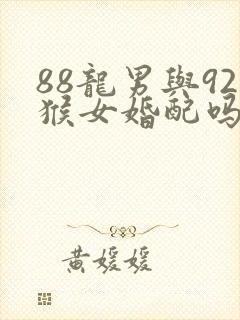 88龍男與92
猴女婚配吗
黄媛媛